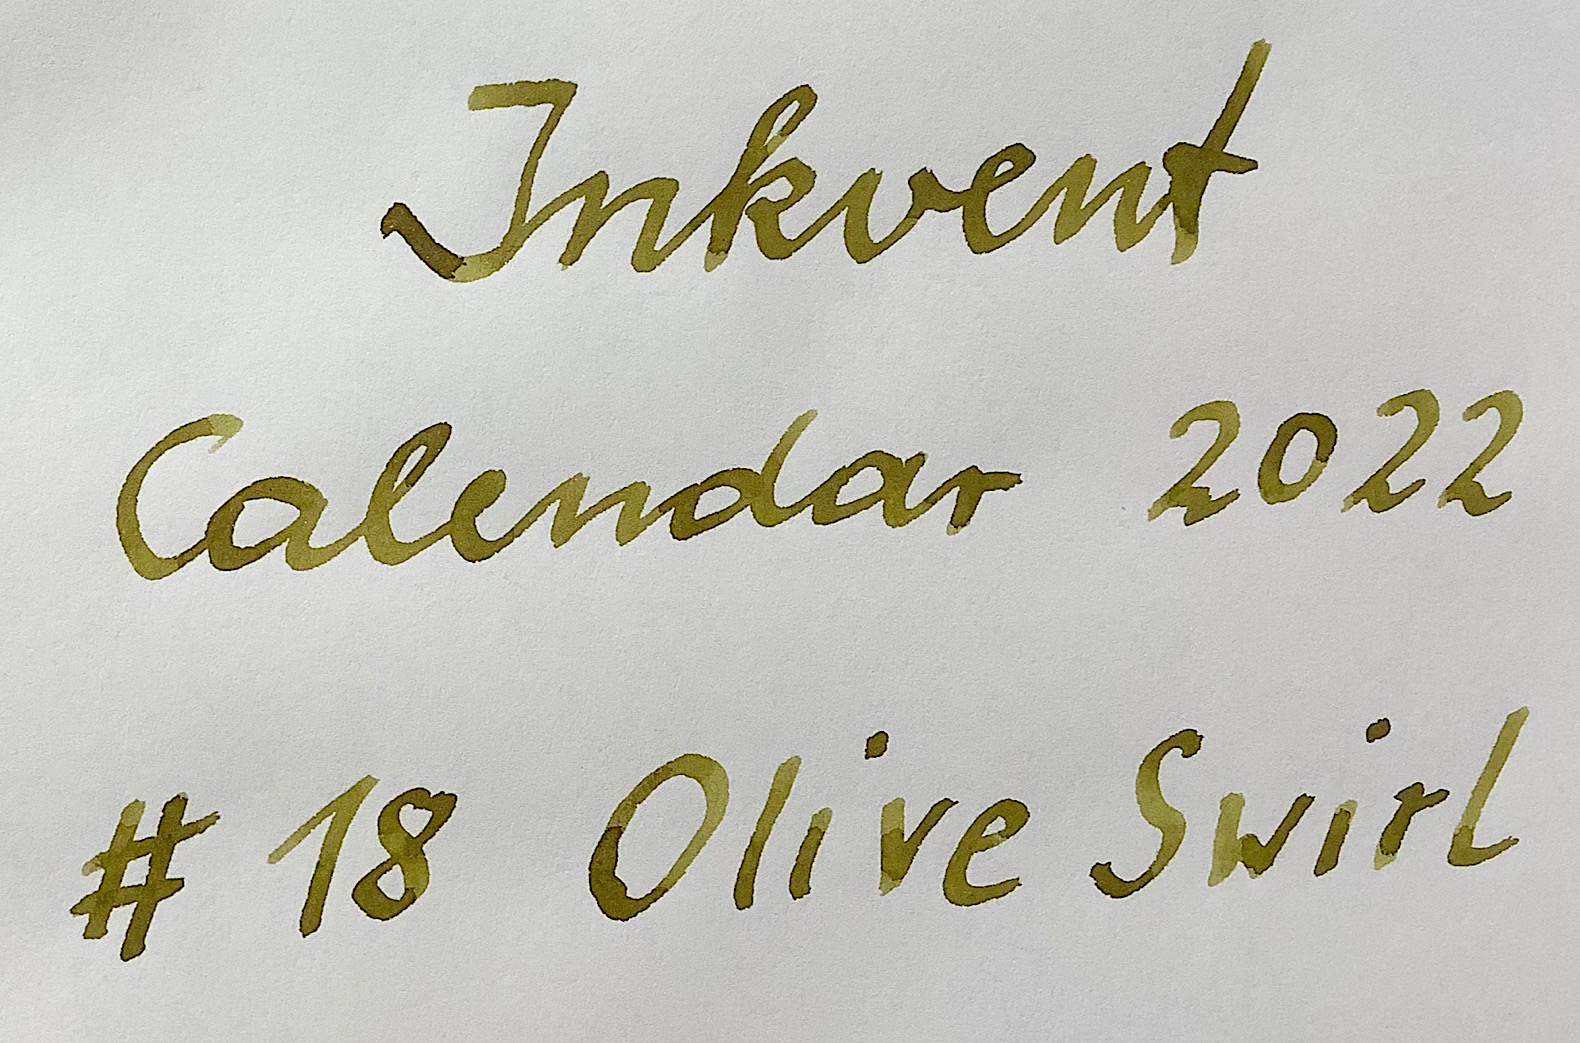 Inkvent
Calendar 2022
# 18 Olive Swirl